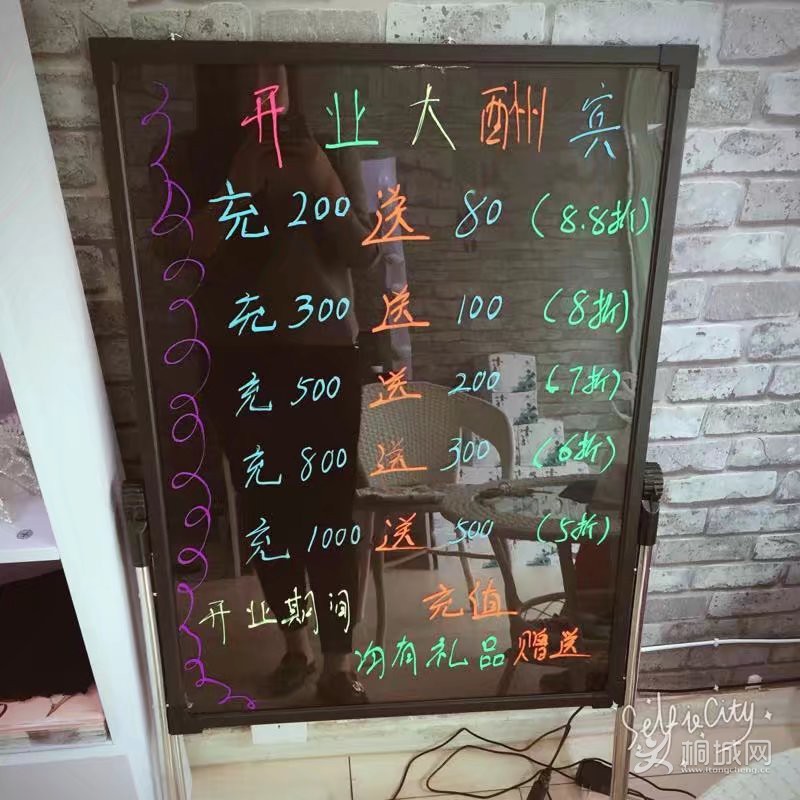 开业大酬宾
充200送80(8.8折)
充300送100(8折)
充500送200(7折)
充800送300(6折)
充1000送500(5折)
开业期间 充值
均有礼品赠送
Selfie City
桐城网
www.itongcheng.cc